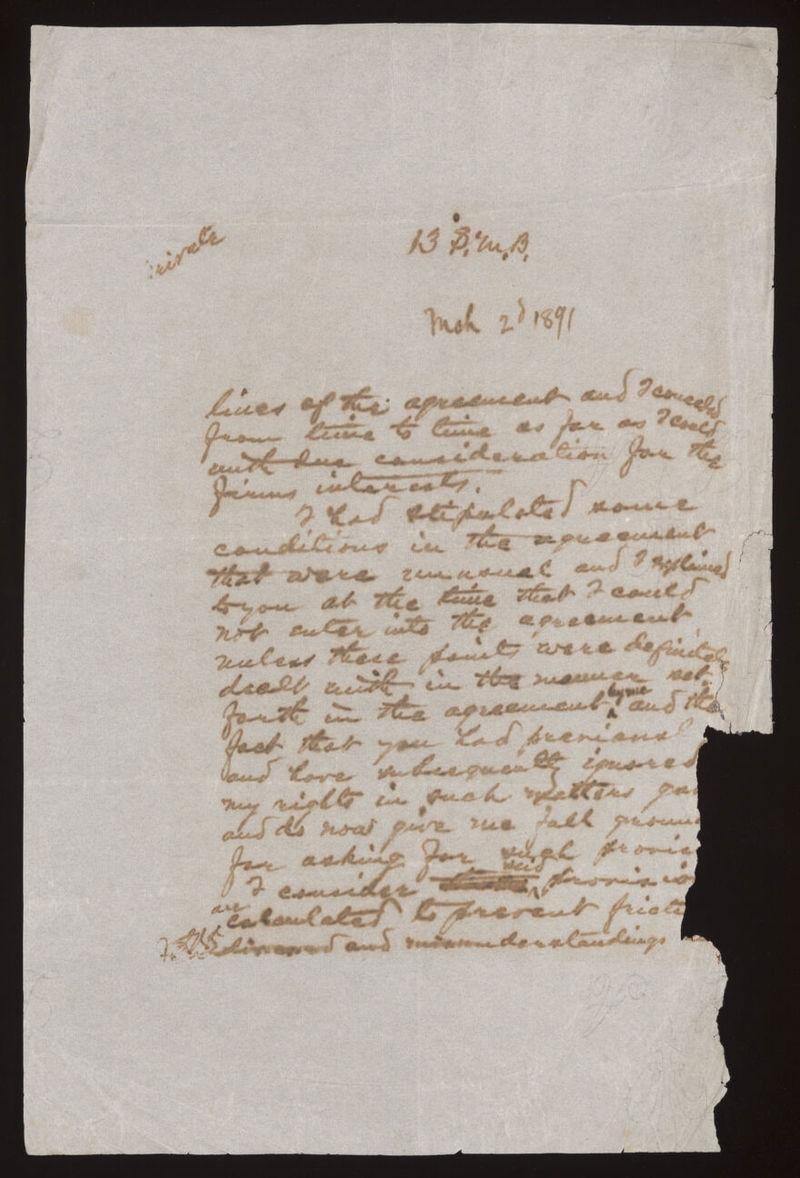 Private
13 S. M. B.
Mch 2d 1891
lines of the agreement and I conceded
from time to time as far as I could
with due consideration for the
firms interests.
I had stipulated some
conditions in the agreement
that were unusual and I explained
to you at the time that I could
not enter into the agreement
unless these points were definitely
dealt with in the manner set
forth in the agreement by me and the
fact that you had previousl
and have subsequently ignored
my rights in such matters
and do now give me full groun
for asking for such provis
I consider said provisio
are calculated to prevent fricti
and misunderstandings